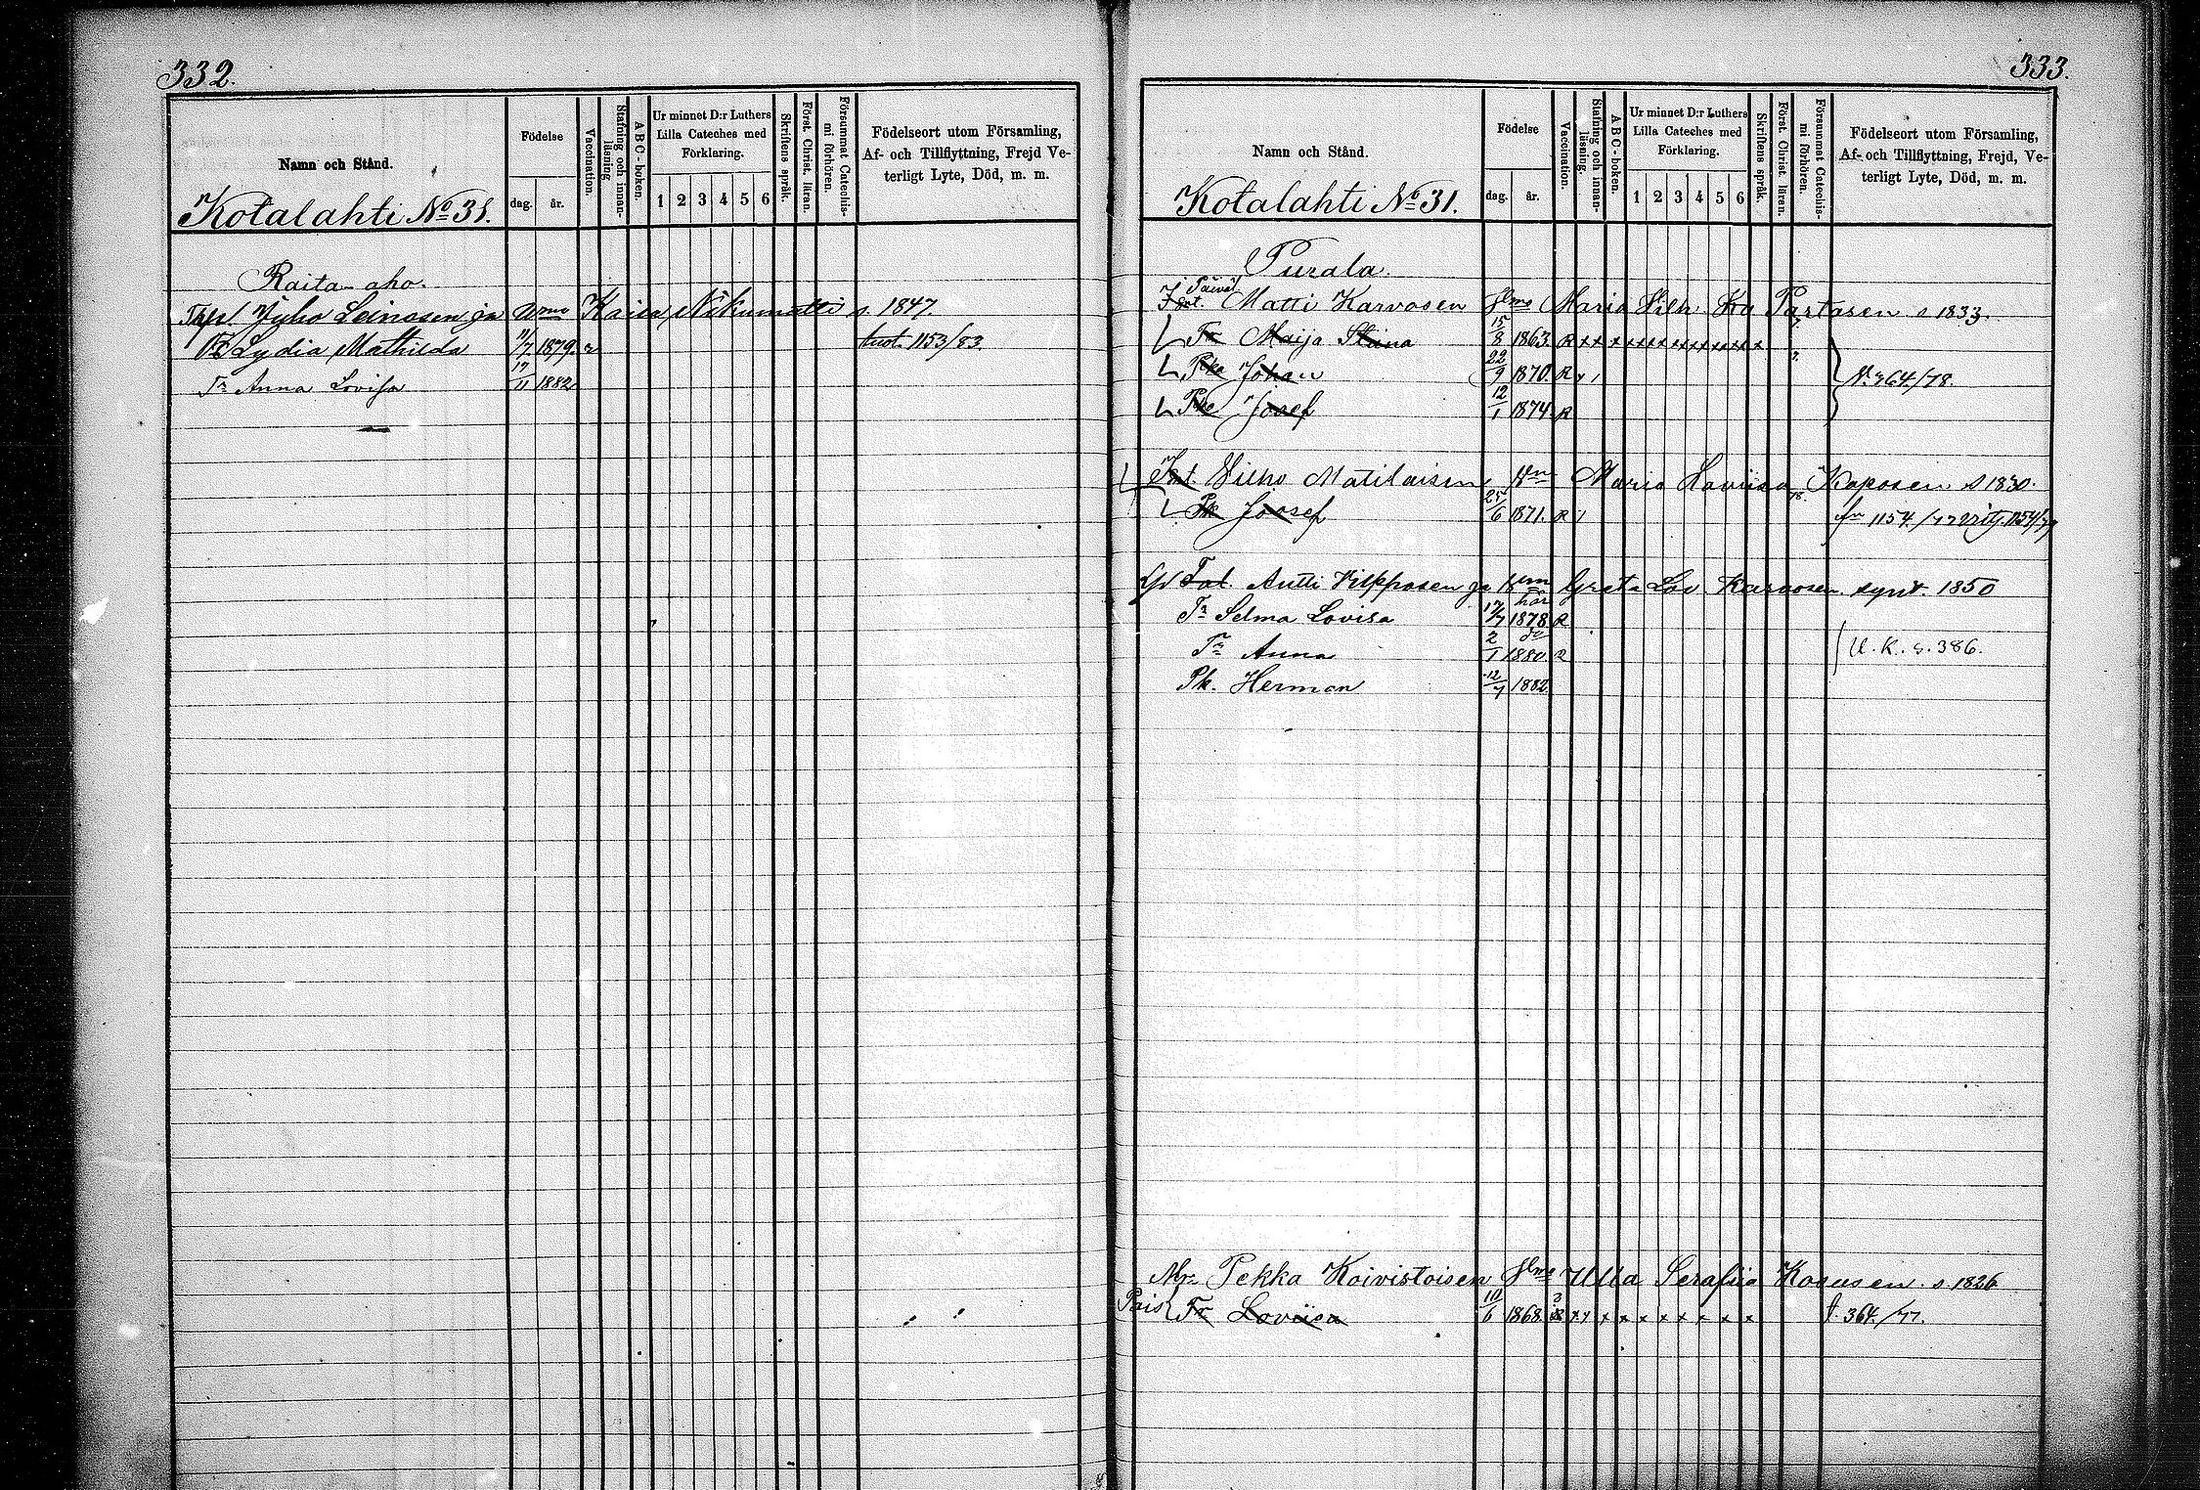 332.
Namn och Stånd.
Födelse
dag.
år.
Vaccination.
Stafning och innan-
läsning
ABC-boken.
Ur minnet D:r Luthers
Lilla Cateches med
Förklaring.
1 2 3 4 5 6
Skriftens språk.
Först. Christ. läran.
Försummat Catechis-
mi förhören.
Födelseort utom Församling,
Af- och Tillflyttning, Frejd Ve-
terligt Lyte, Död, m. m.
Kotalahti No 31.
Raita-aho.
Leinosen ja Kaisa s. 1847.
Lydia Mathilda 11/7 1879. 1153/83
Tr Anna Lovisa 17/11 1882
333.
Namn och Stånd.
Födelse
dag.
år.
Vaccination.
Stafning och innan-
läsning.
ABC-boken.
Ur minnet D:r Luthers
Lilla Cateches med
Förklaring.
1 2 3 4 5 6
Skriftens språk.
Först. Christ. läran.
Försummat Catechis-
mi förhören.
Födelseort utom Församling,
Af- och Tillflyttning, Frejd, Ve-
terligt Lyte, Död, m. m.
Kotalahti No 31.
Purala.
Matti Karvosen Maria Partasen s 1833.
Tr Maija Stiina 15/8 1863. R x x x x x x x x x x x
Johan 22/9 1870. R
N. 364./78.
Josef 12/1 1874 R
Matilaisen Maria Loviisa Kaposen s 1830.
Joosef 25/6 1871. R 1154.
Antti Vilpposen ja Greta Lov. Karvosen synt. 1850
Tr Selma Lovisa 17/7 1878 R
Tr Anna 2/1 1880. R
U. K. s. 386.
Ph. Herman 12/7 1882
Pekka Koivistoisen Ulla Serafiia Kososen s 1826
Tr Loviisa 10/6 1868. x x x x x x x x x 364./77.